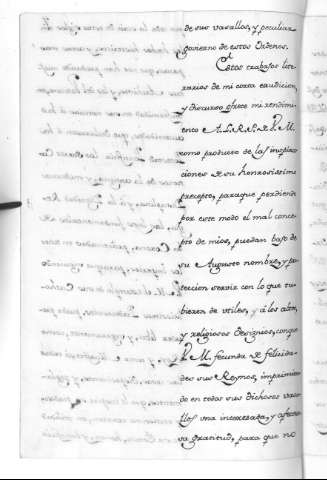 de sus vasallos, y peculiar
govierno de estos Ordenes.
Estos trabajos lite-
rarios de mi corta erudicion,
y discurso ofrece mi rendimi-
ento A. L. R. P. de V. M.
como producto de las inspira-
ciones de su honrosisimo
precepto, paraque perdiendo
por este modo el mal conce-
pto de mios, puedan bajo de
su Augusto nombre, y pro-
teccion servir con lo que tu-
bieren de utiles, y á los altos,
y religiosos designios, con que
V. M. fecunda de felicida-
des sus Reynos, imprimien-
do en todos sus dichosos vasa-
llos una interesada, y afectuo-
sa gratitud, para que no